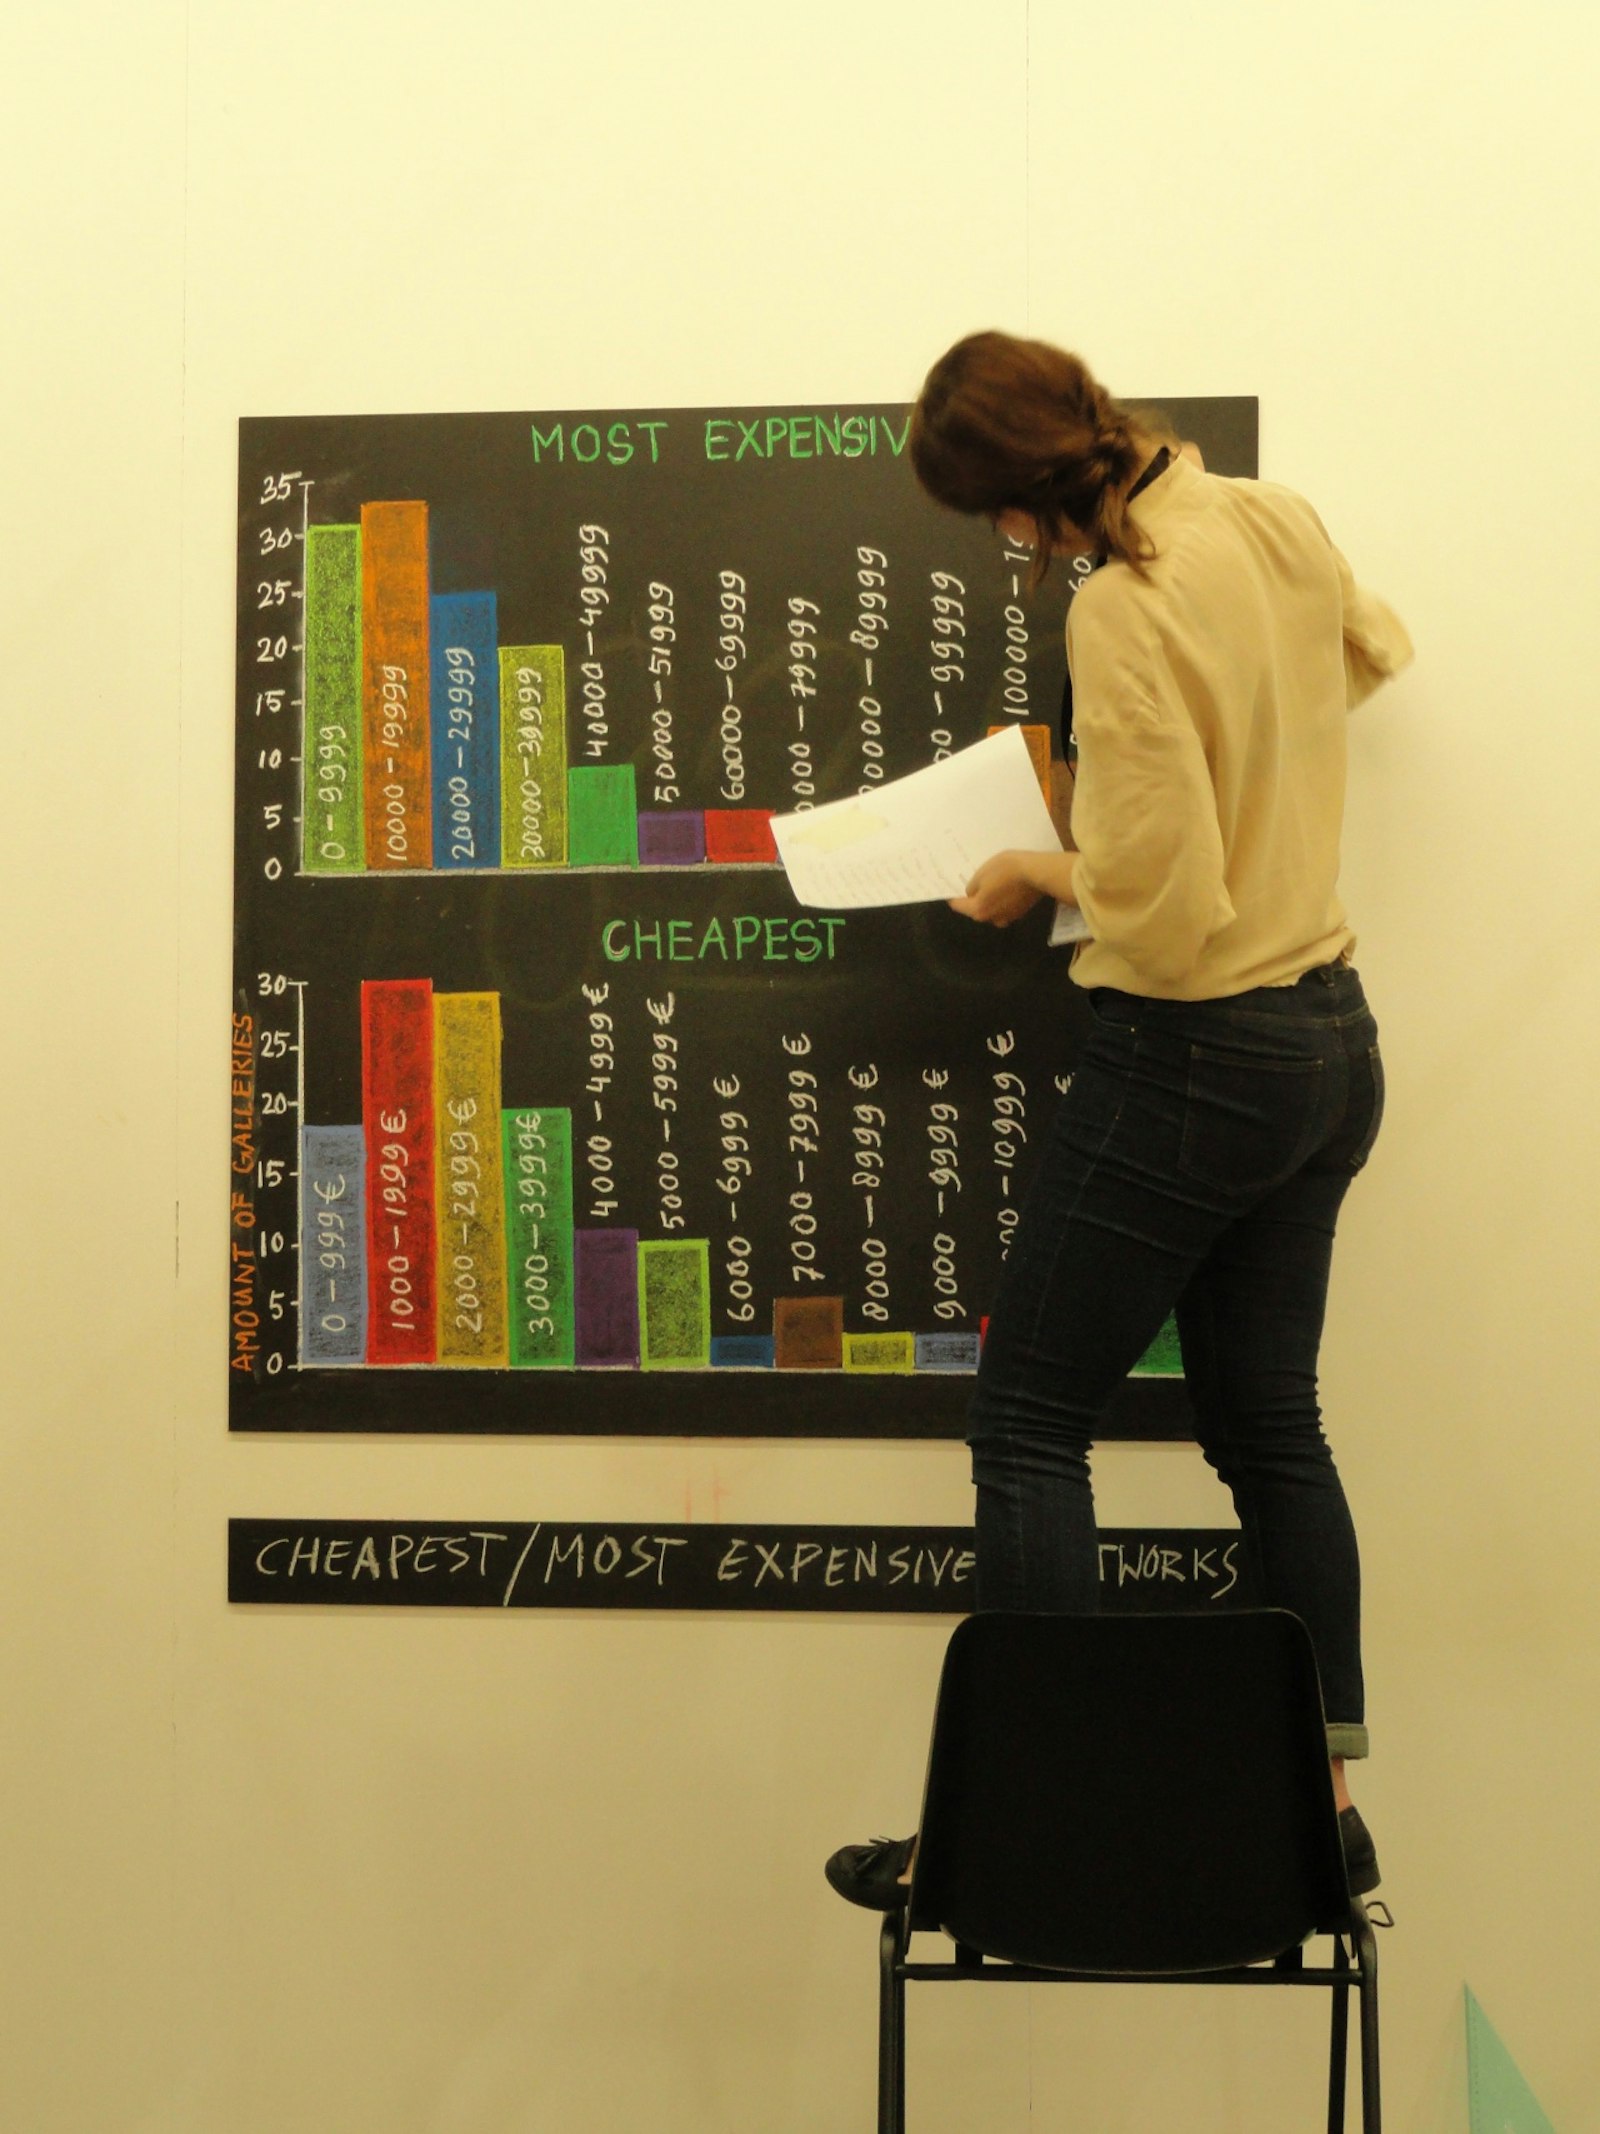 MOST EXPENSIV
35
30
25
20
15
10
5
0
0-9999
10000-19999
20000-29999
30000-39999
40000-49999
50000-51999
60000-69999
0000-79999
0000-89999
00-99999
100000-19
60
CHEAPEST
AMOUNT OF GALLERIES
30
25
20
15
10
5
0
0-999€
1000-1999€
2000-2999€
3000-3999€
4000-4999€
5000-5999€
6000-6999€
7000-7999€
8000-8999€
9000-9999€
00-10999€
€
CHEAPEST/MOST EXPENSIVE TWORKS